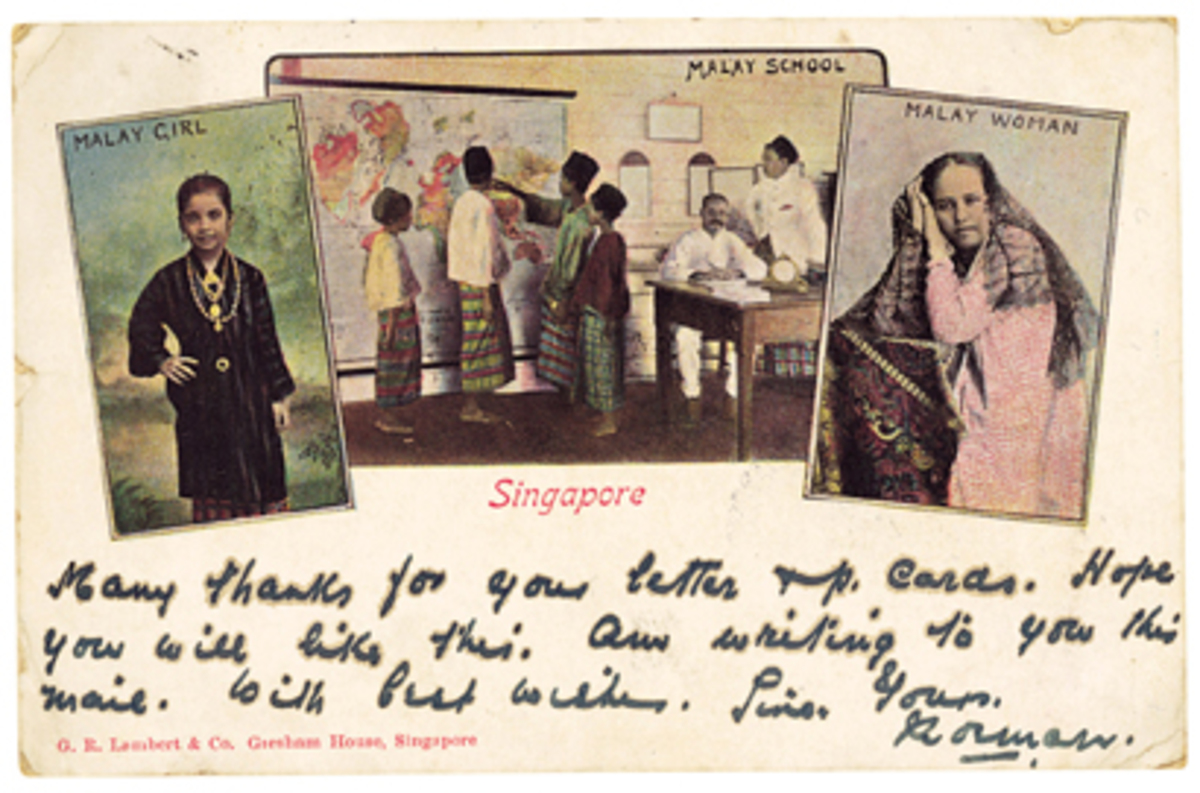 MALAY GIRL
MALAY SCHOOL
MALAY WOMAN
Singapore
Many thanks for your letter & p. cards. Hope
you will like this. Am writing to you this
mail. With best wishes. Sinc. Yours.
Norman.
G. R. Lambert & Co. Gresham House, Singapore